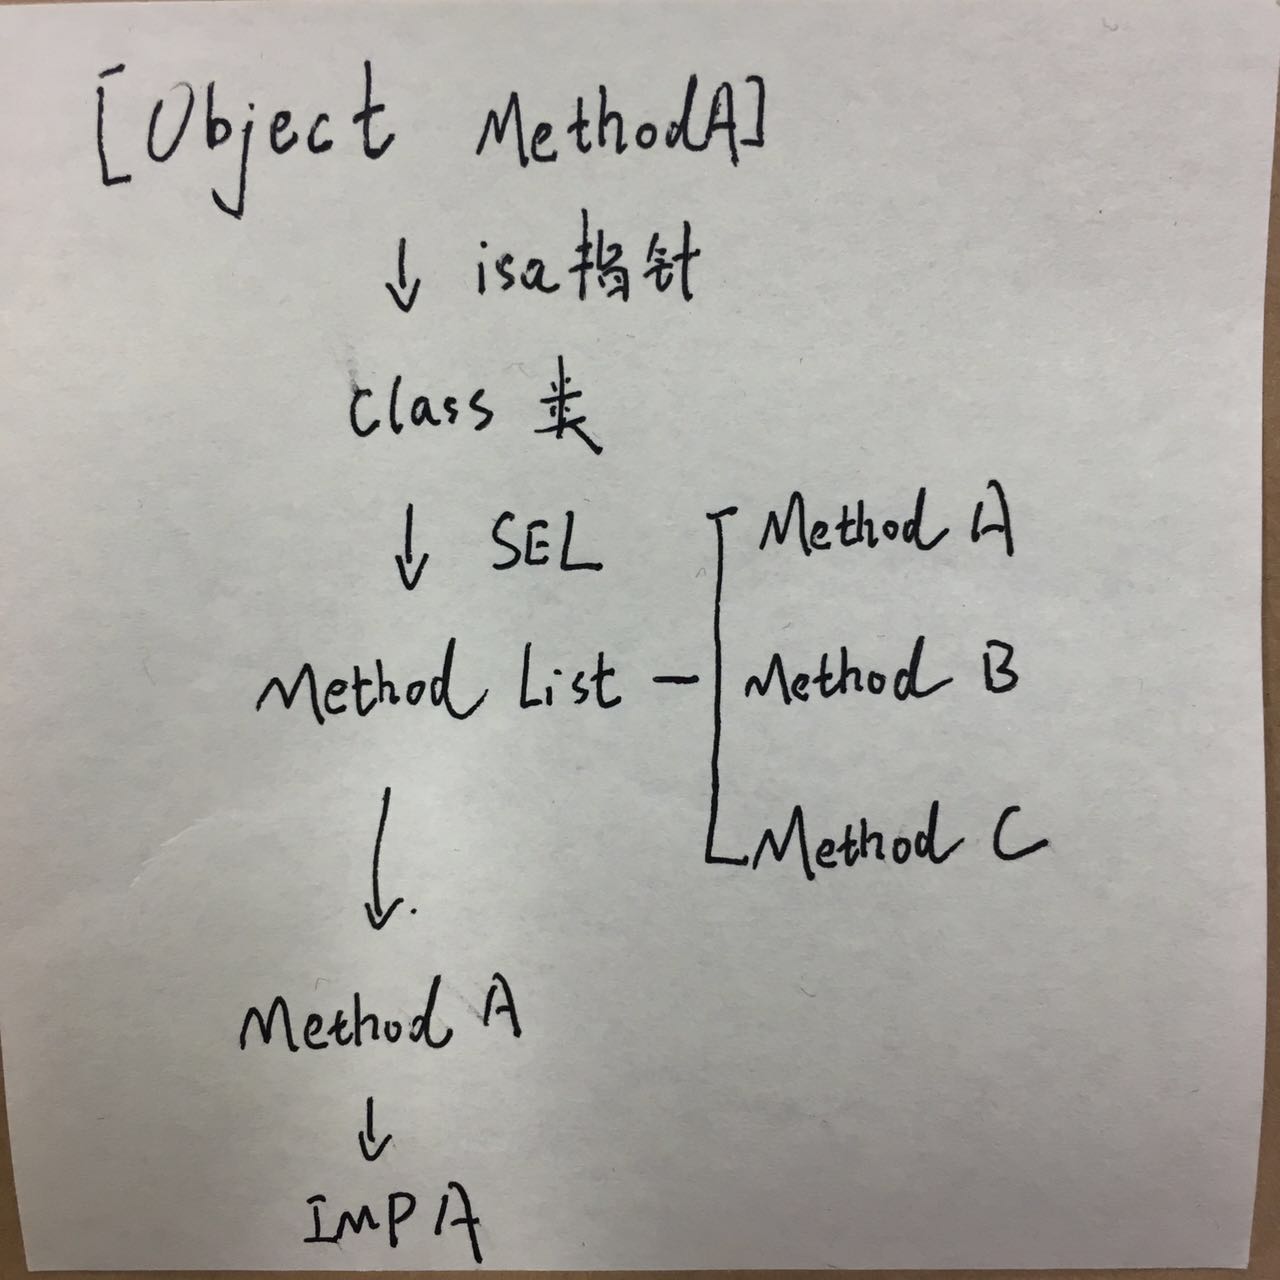 [Object MethodA]
↓ isa指针
Class 类
↓ SEL
Method List
Method A
Method B
Method C
↓
Method A
↓
IMP A